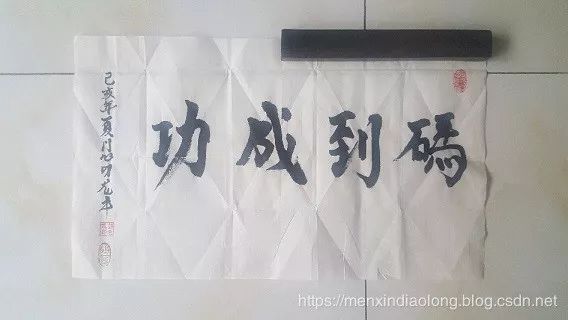 碼到成功
己亥年夏月
https://menxindiaolong.blog.csdn.net